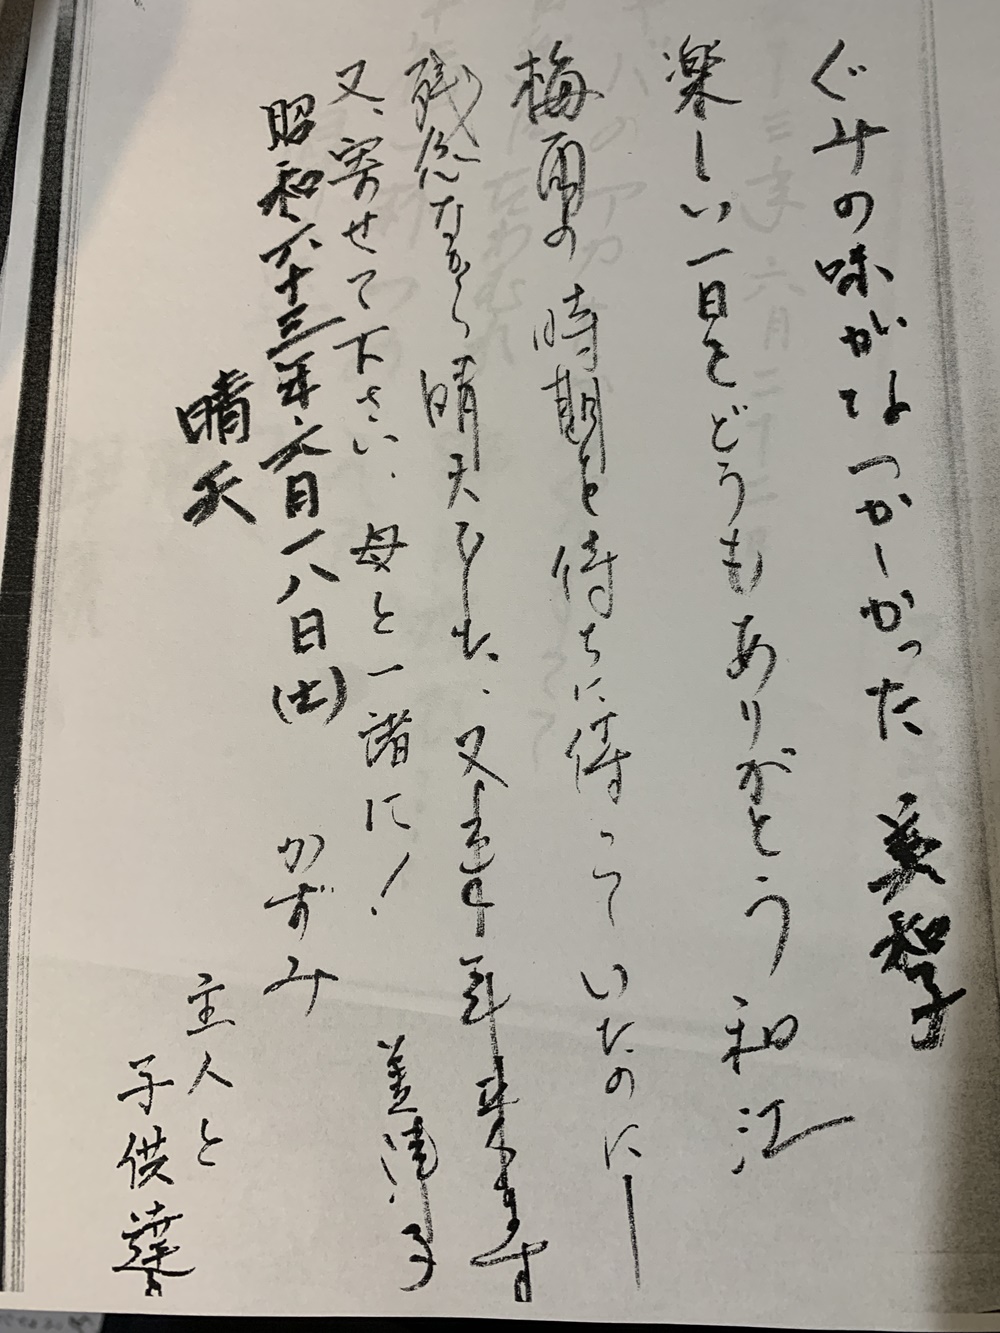 ぐみの味がなつかしかった 美和子
楽しい一日をどうもありがとう 和江
梅雨の時期と待ちに待っていたのにー
残念ながら晴天でした、又来年来ます
又、寄せて下さい、母と一諸に!
昭和六十三年六月一八日(土) かずみ
晴天
主人と
子供達